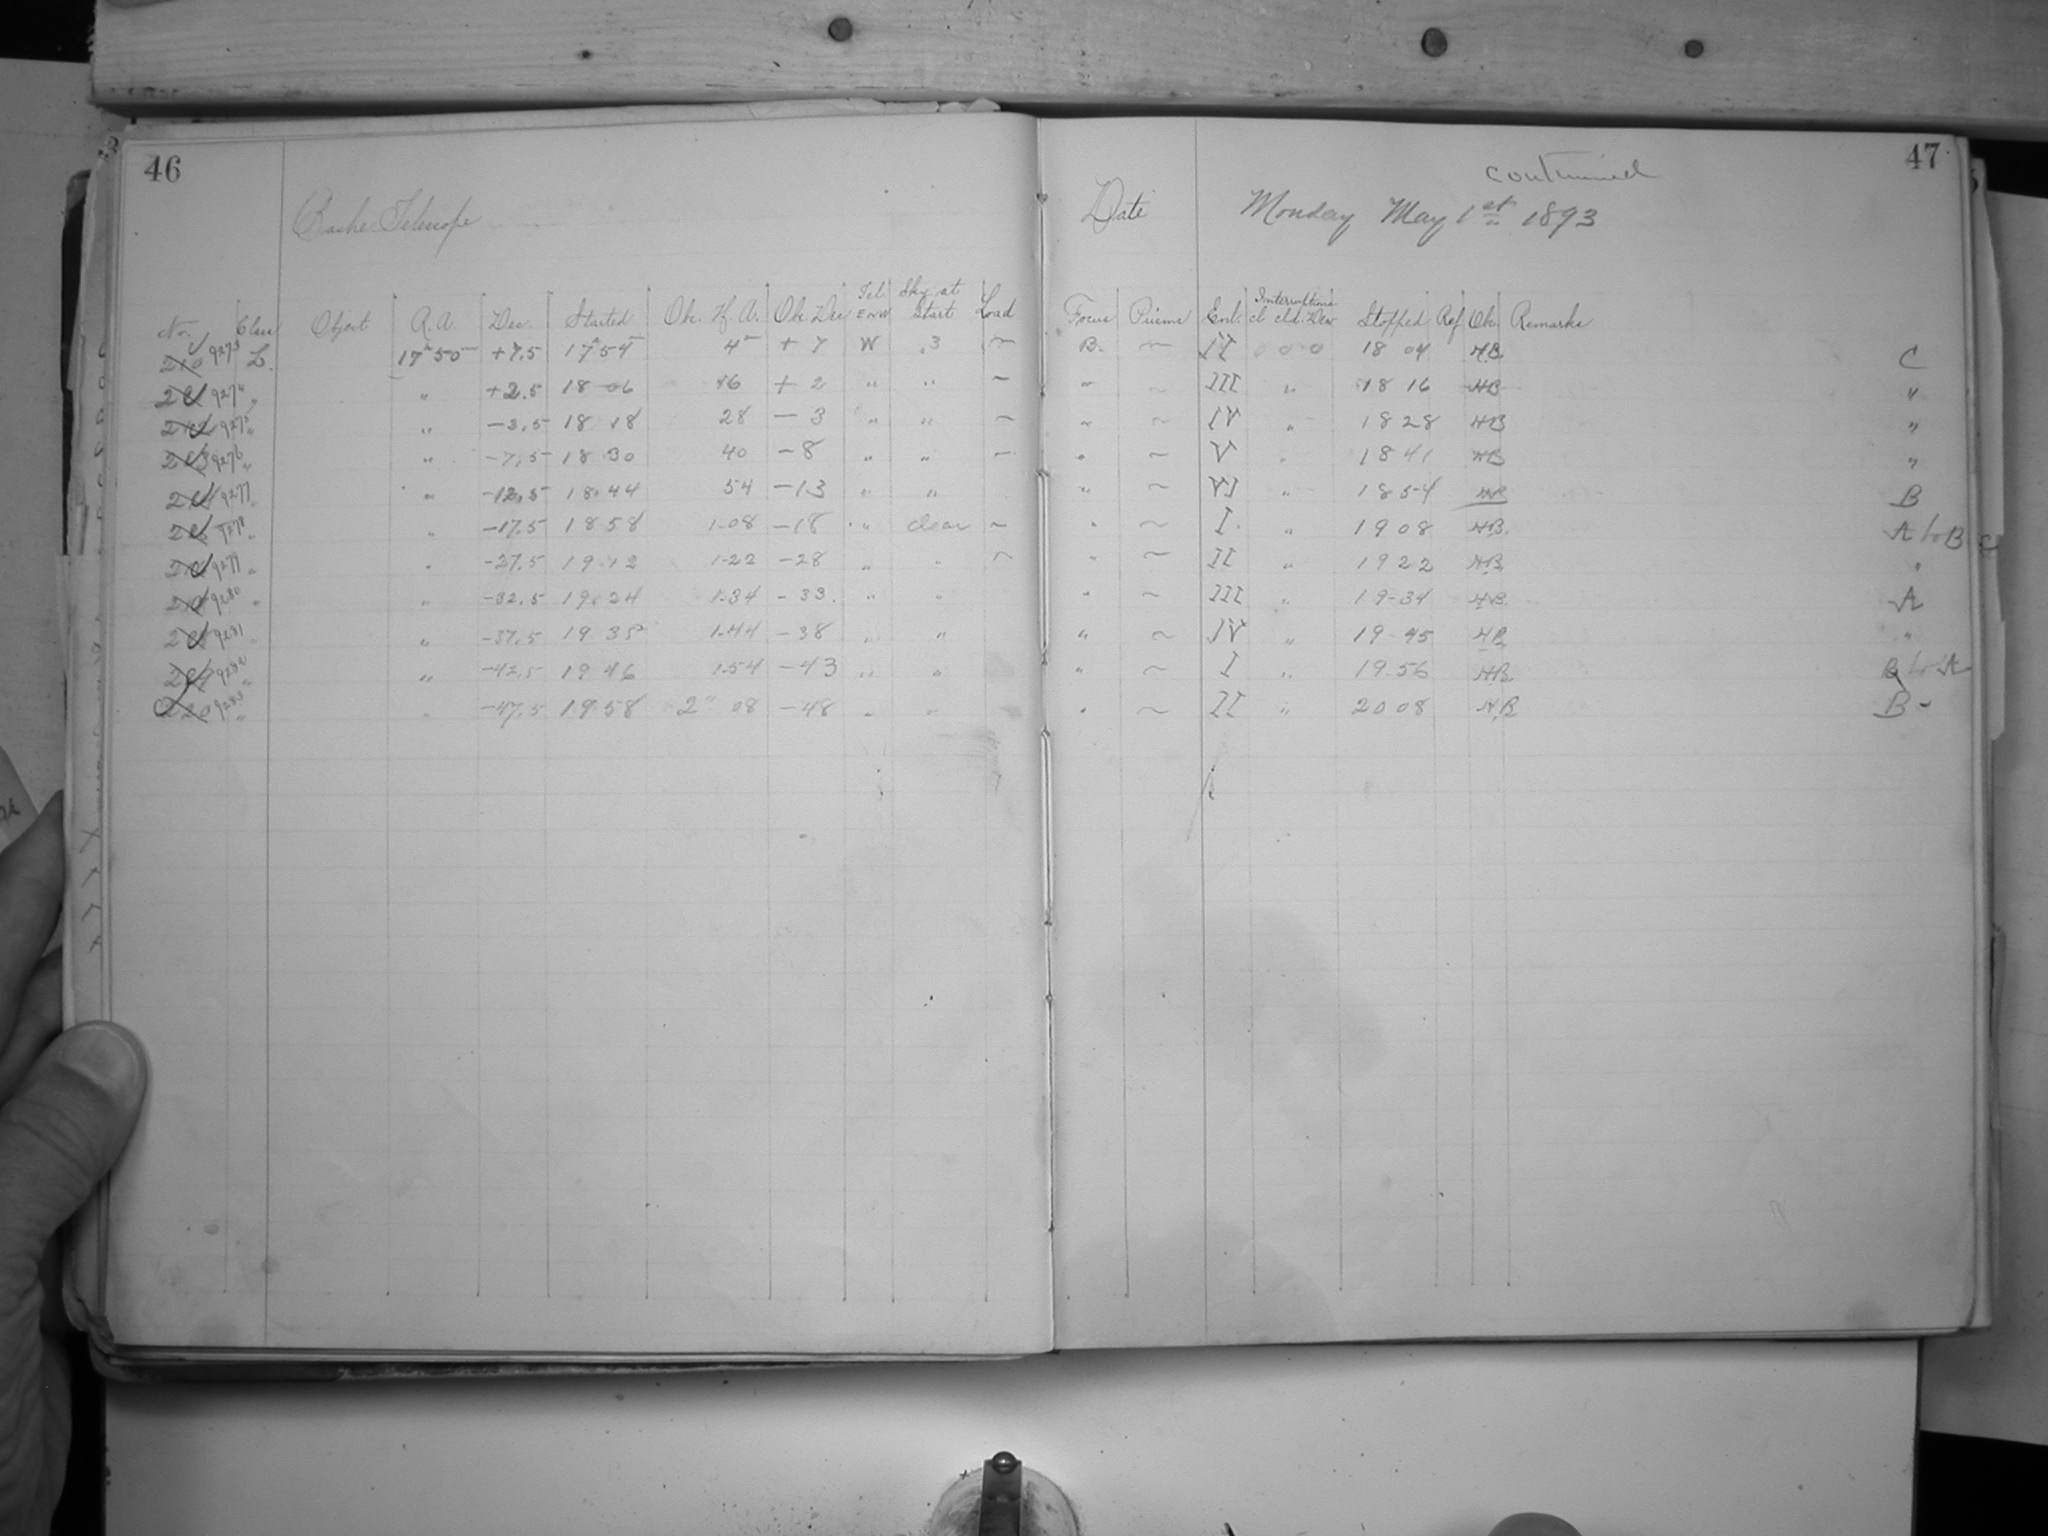 46
47
continued
Bache Telescope
Date Monday May 1st 1893
No. Class Object R.A. Dec. Started Ob. H.A. Ob. Dec Tel. E or W Sky at Start Load Focus Prisms Ent. Interruptions cl cld. Dew Stopped Ref Ob. Remarks
210 9273 L. 17h 50m +7.5 17h 54m 4m + 7 W .3 ~ B. ~ VI 0 0 0 18 04 H.B. C
211 9274 " " +2.5 18 06 16 + 2 " " ~ " ~ III " 18 16 HB "
212 9275 " " -2.5 18 18 28 - 3 " " ~ " ~ IV " 18 28 HB "
213 9276 " " -7.5 18 30 40 -8 " " ~ " ~ V " 18 41 HB "
214 9277 " " -12.5 18.44 54 -13 " " " ~ VI " 18 54 B
215 9278 " " -17.5 18 58 1-08 -18 " clear ~ " ~ I. " 19 08 H.B. A to B
216 " " -27.5 19 12 1-22 -28 " " ~ " ~ II " 19 22 H.B. "
217 9280 " " -32.5 19.24 1.34 - 33. " " " ~ III " 19-34 H.B. A
218 9281 " " -37.5 19 35 1.44 -38 " " " ~ IV " 19-45 H.B. "
219 9282 " " -42.5 19 46 1.54 -43 " " " ~ I " 19.56 H.B. B to A
220 9283 " " -47.5 19 58 2h 08 -48 " " " ~ II " 20 08 H.B B -